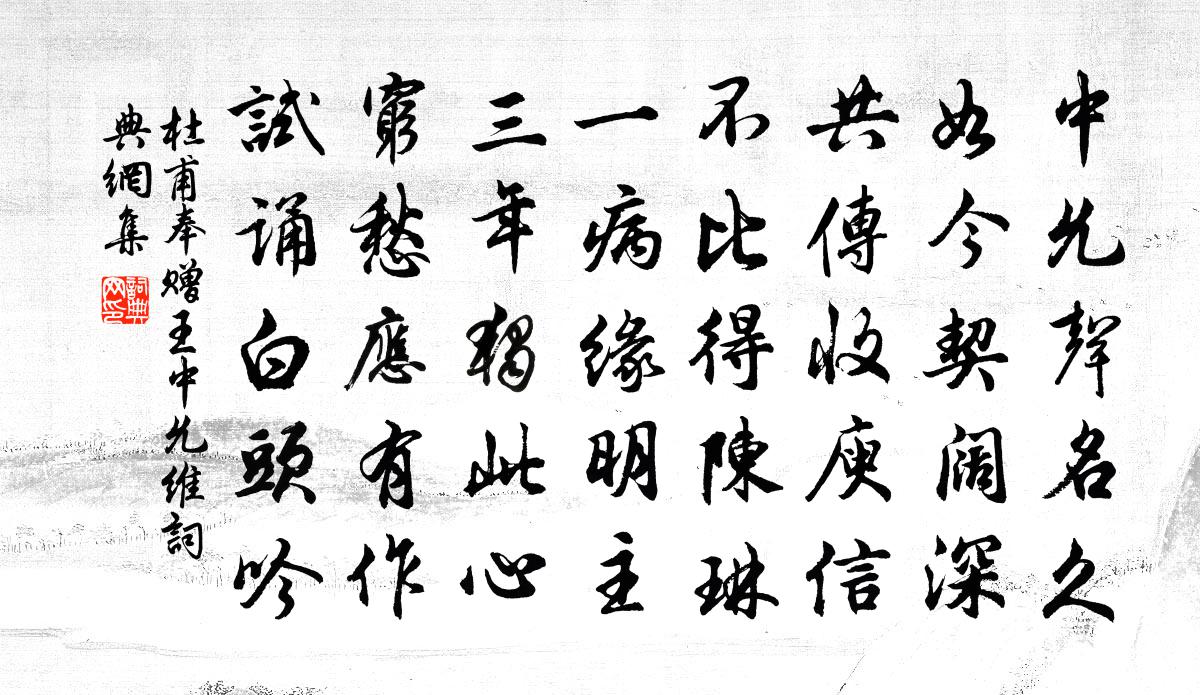 中允聲名久
如今契闊深
共傳收庾信
不比得陳琳
一病緣明主
三年獨此心
窮愁應有作
試誦白頭吟
杜甫奉贈王中允維詞
典網集
詞典
网印